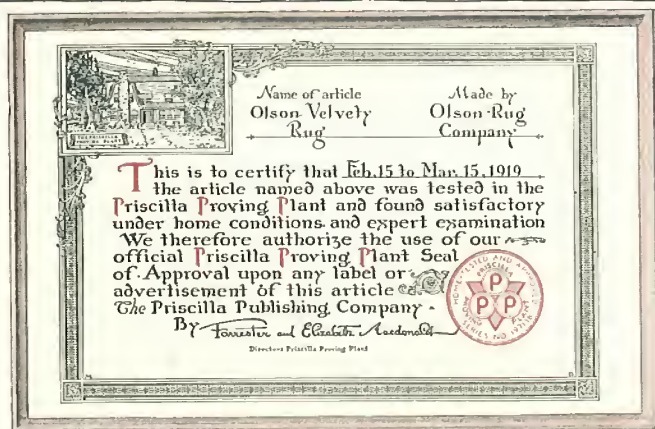 Name of article
Olson Velvety
Rug
Made by
Olson Rug
Company
THE PRISCILLA
PROVING PLANT
This is to certify that Feb. 15 to Mar. 15, 1919
the article named above was tested in the
Priscilla Proving Plant and found satisfactory
under home conditions and expert examination
We therefore authorize the use of our
official Priscilla Proving Plant Seal
of Approval upon any label or
advertisement of this article
The Priscilla Publishing Company.
By Forrester and Elizabeth Macdonald
Directors Priscilla Proving Plant
HOME-TESTED AND APPROVED
PRISCILLA
PROVING PLANT
P
P P
SERIES NO.